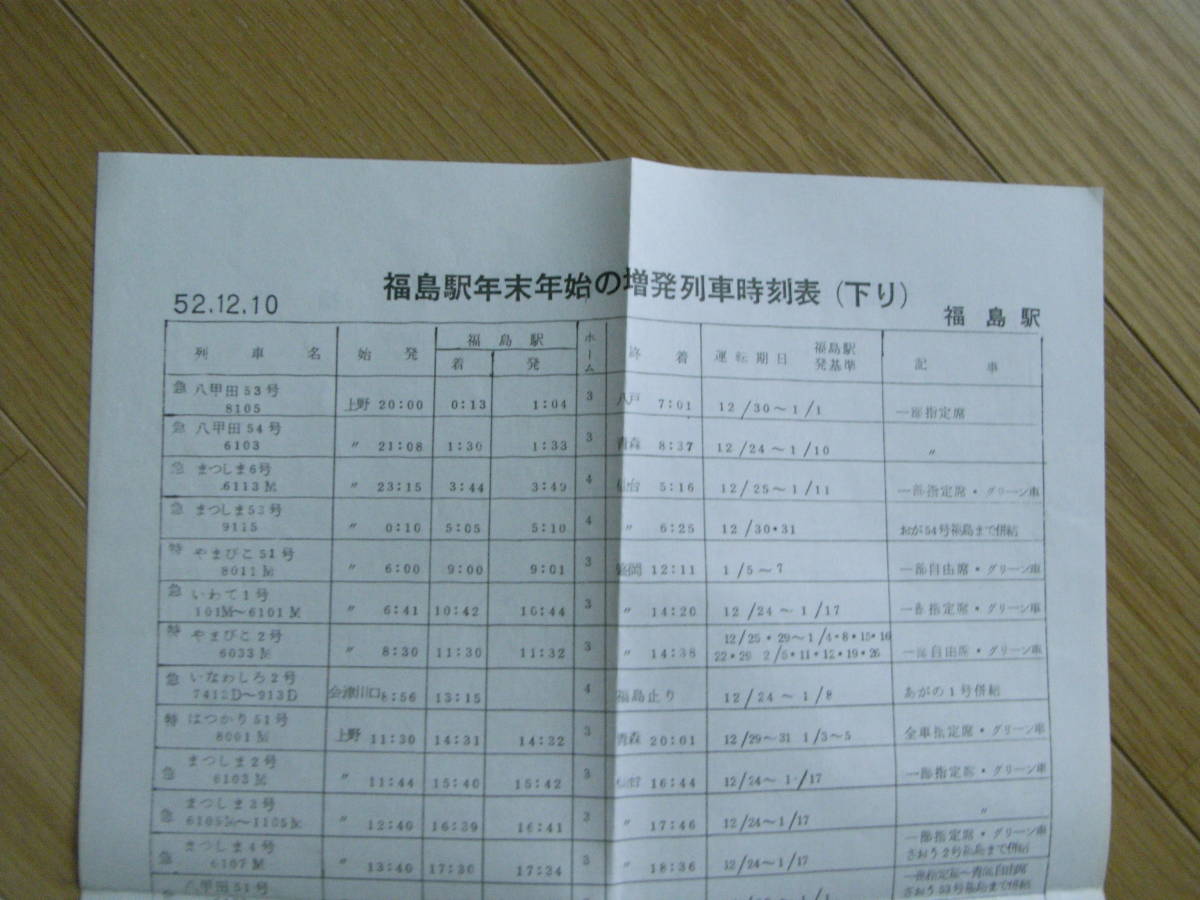 福島駅年末年始の増発列車時刻表(下り)
52.12.10 福島駅
列車名 始発 福島駅 着 発 ホーム 終着 運転期日 福島駅発基準 記事
急 八甲田53号 8105 上野 20:00 0:13 1:04 3 八戸 7:01 12/30～1/1 一部指定席
急 八甲田54号 6103 〃 21:08 1:30 1:33 3 青森 8:37 12/24～1/10 〃
急 まつしま6号 6113M 〃 23:15 3:44 3:49 4 仙台 5:16 12/25～1/11 一部指定席・グリーン車
急 まつしま53号 9115 〃 0:10 5:05 5:10 4 〃 6:25 12/30・31 おが54号福島まで併結
特 やまびこ51号 8011M 〃 6:00 9:00 9:01 3 盛岡 12:11 1/5～7 一部自由席・グリーン車
急 いわて1号 101M～6101M 〃 6:41 10:42 10:44 3 〃 14:20 12/24～1/17 一部指定席・グリーン車
特 やまびこ2号 6033M 〃 8:30 11:30 11:32 3 〃 14:38 12/25・29～1/4・8・15・16 22・29 2/5・11・12・19・26 一部自由席・グリーン車
急 いなわしろ2号 7412D～913D 会津川口 8:56 13:15 4 福島止り 12/24～1/8 あがの1号併結
特 はつかり51号 8001M 上野 11:30 14:31 14:32 3 青森 20:01 12/29～31 1/3～5 全車指定席・グリーン車
急 まつしま2号 6103M 〃 11:44 15:40 15:42 3 仙台 16:44 12/24～1/17 一部指定席・グリーン車
急 まつしま3号 6105M～1105M 〃 12:40 16:39 16:41 3 〃 17:46 12/24～1/17 〃
急 まつしま4号 6107M 〃 13:40 17:30 17:34 3 〃 18:36 12/24～1/17 一部指定席・グリーン車 ざおう2号福島まで併結
八甲田51号 ざおう53号福島まで併結